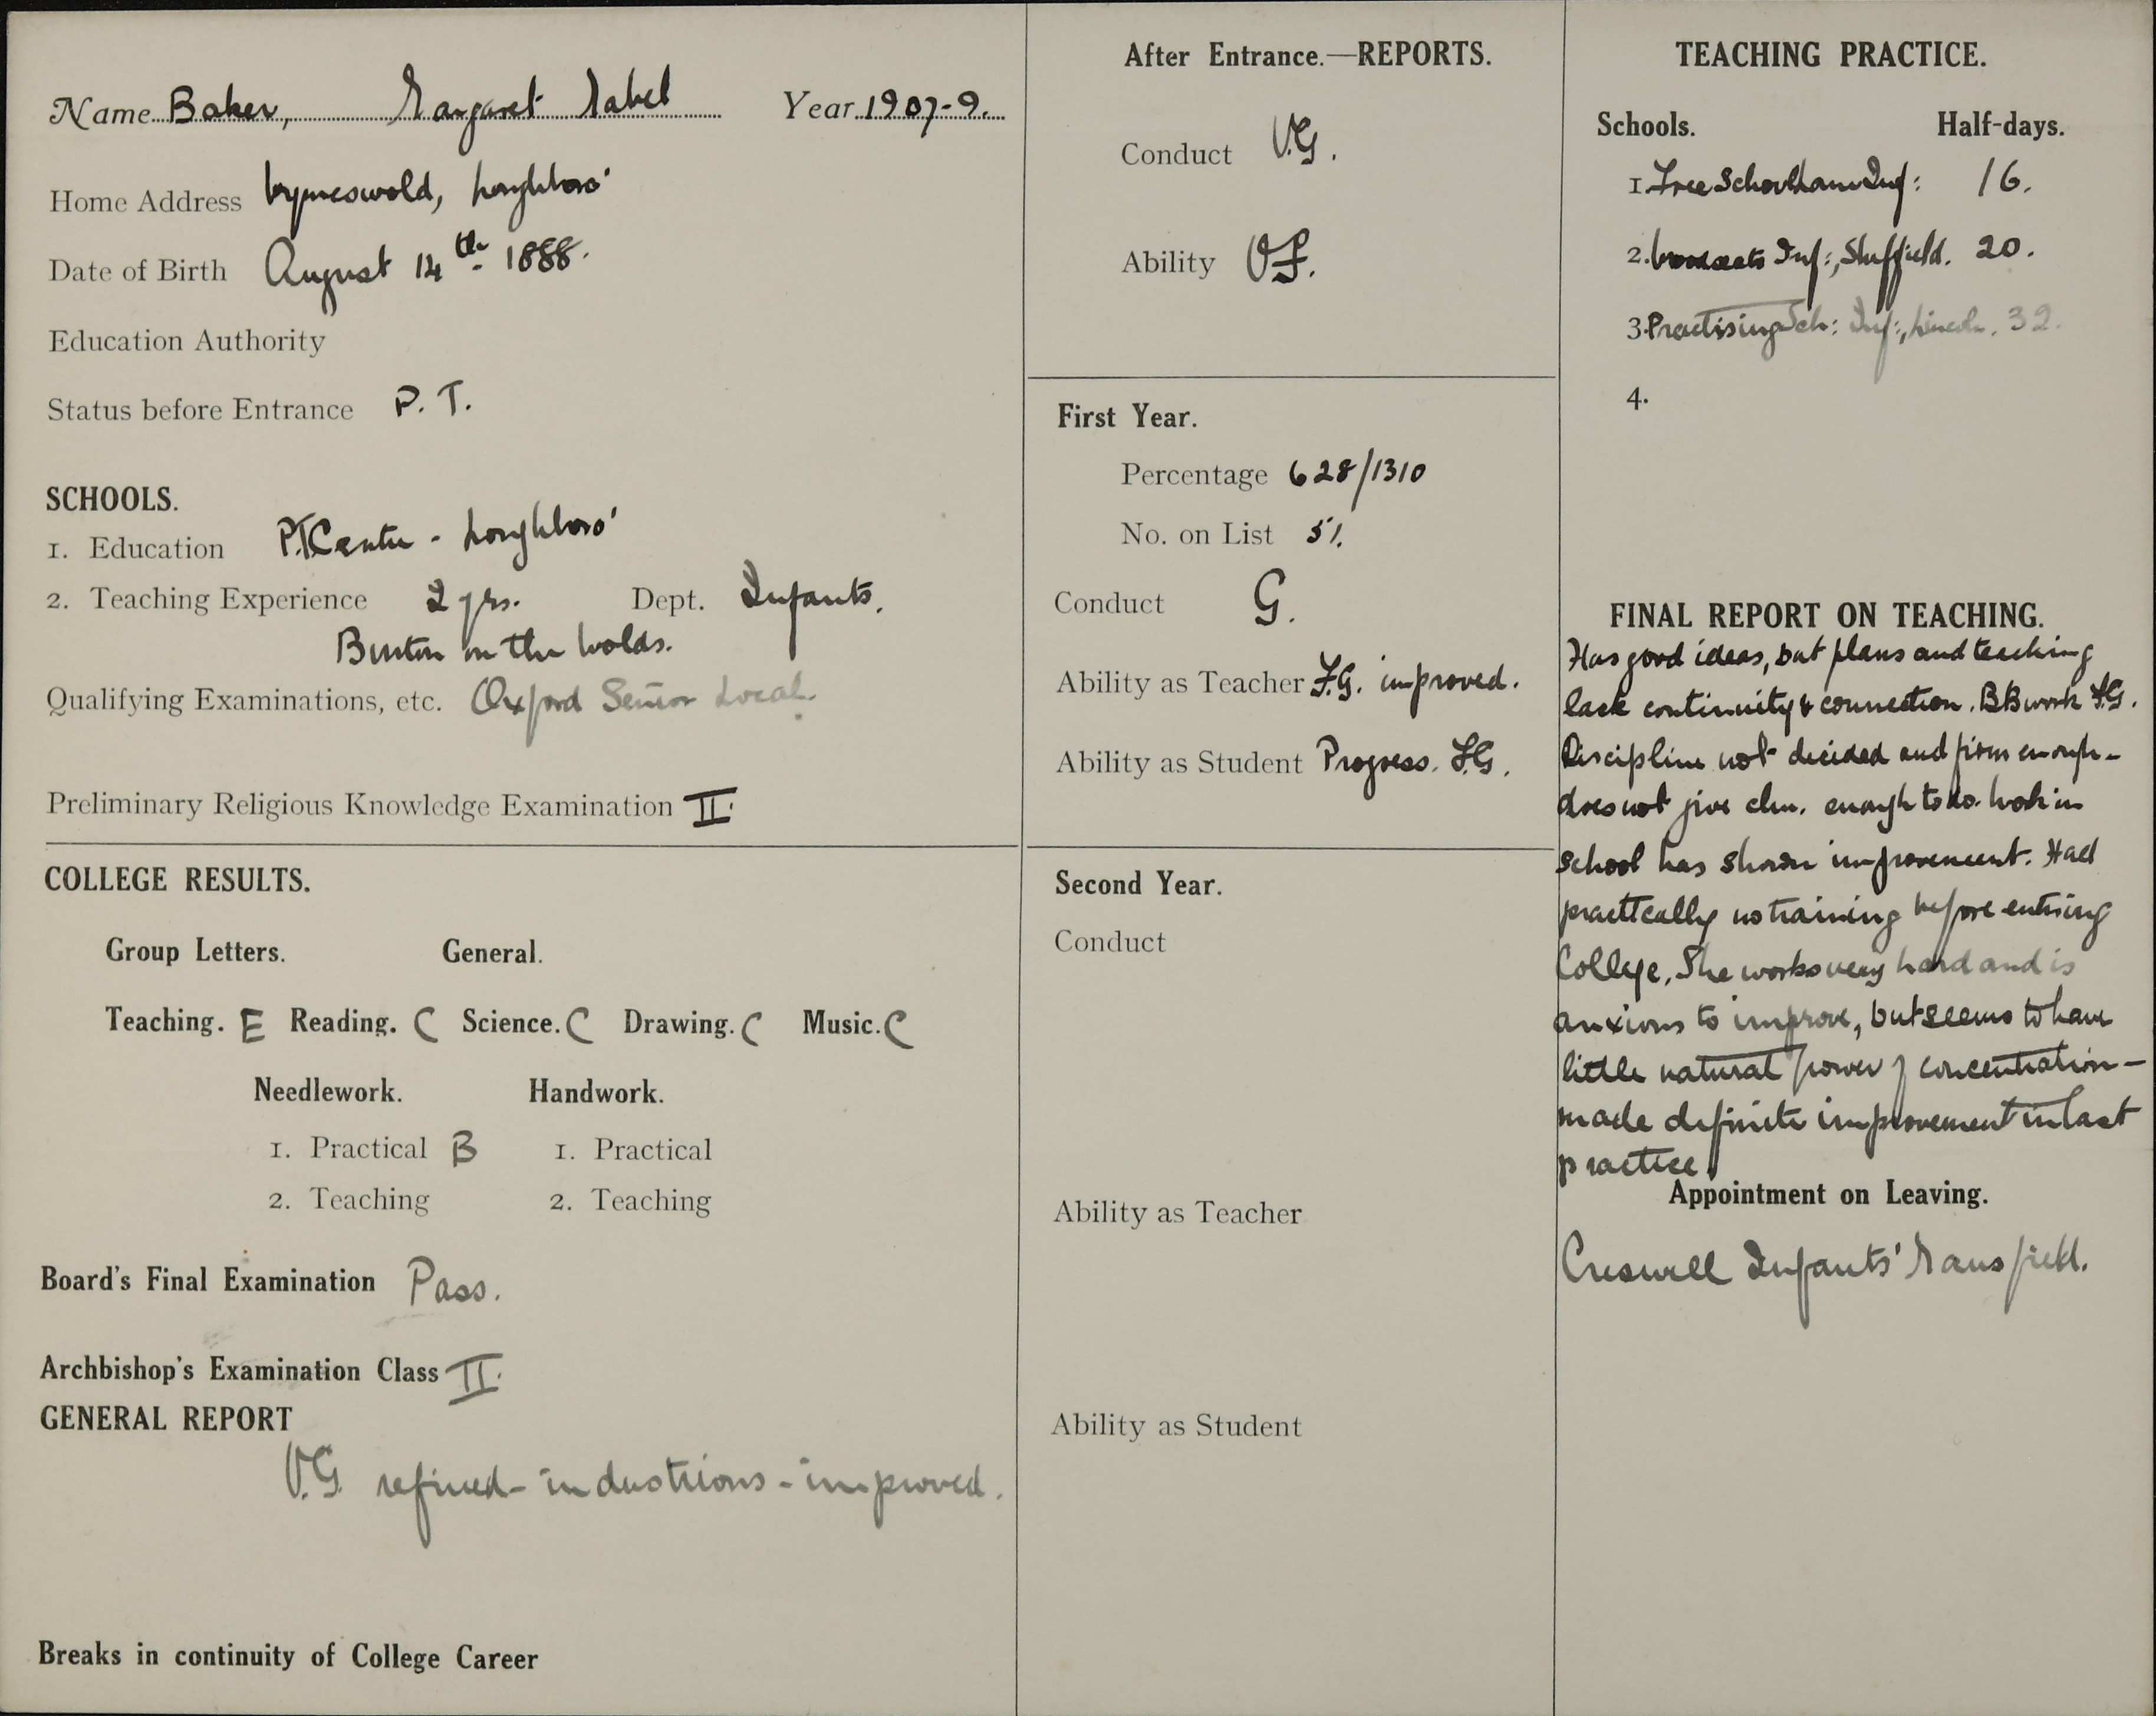 Name Baker, Margaret Mabel Year 1907-9.
Home Address Wymeswold, Loughboro'
Date of Birth August 14th 1888.
Education Authority
Status before Entrance P. T.
SCHOOLS.
1. Education P.T Centre - Loughboro'
2. Teaching Experience 2 yrs. Dept. Infants.
Burton on the Wolds.
Qualifying Examinations, etc. Oxford Senior Local.
Preliminary Religious Knowledge Examination II.
COLLEGE RESULTS.
Group Letters. General.
Teaching. E Reading. C Science. C Drawing. C Music. C
Needlework. Handwork.
1. Practical B 1. Practical
2. Teaching 2. Teaching
Board's Final Examination Pass.
Archbishop's Examination Class II.
GENERAL REPORT
V.G. refined - industrious - improved.
Breaks in continuity of College Career
After Entrance.—REPORTS.
Conduct V.G.
Ability V.F.
First Year.
Percentage 628/1310
No. on List 51.
Conduct G.
Ability as Teacher F.G. improved.
Ability as Student Progress. F.G.
Second Year.
Conduct
Ability as Teacher
Ability as Student
TEACHING PRACTICE.
Schools. Half-days.
1. Free School Lane Inf: 16.
2. Woodseats Inf:, Sheffield. 20.
3. Practising Sch: Inf:, Lincoln. 32.
4.
FINAL REPORT ON TEACHING.
Has good ideas, but plans and teaching
lack continuity & connection. BB work F.G.
Discipline not decided and firm enough -
does not give chn. enough to do. Work in
school has shown improvement. Had
practically no training before entering
College. She works very hard and is
anxious to improve, but seems to have
little natural power of concentration -
made definite improvement in last
practice.
Appointment on Leaving.
Creswell Infants' Mansfield.